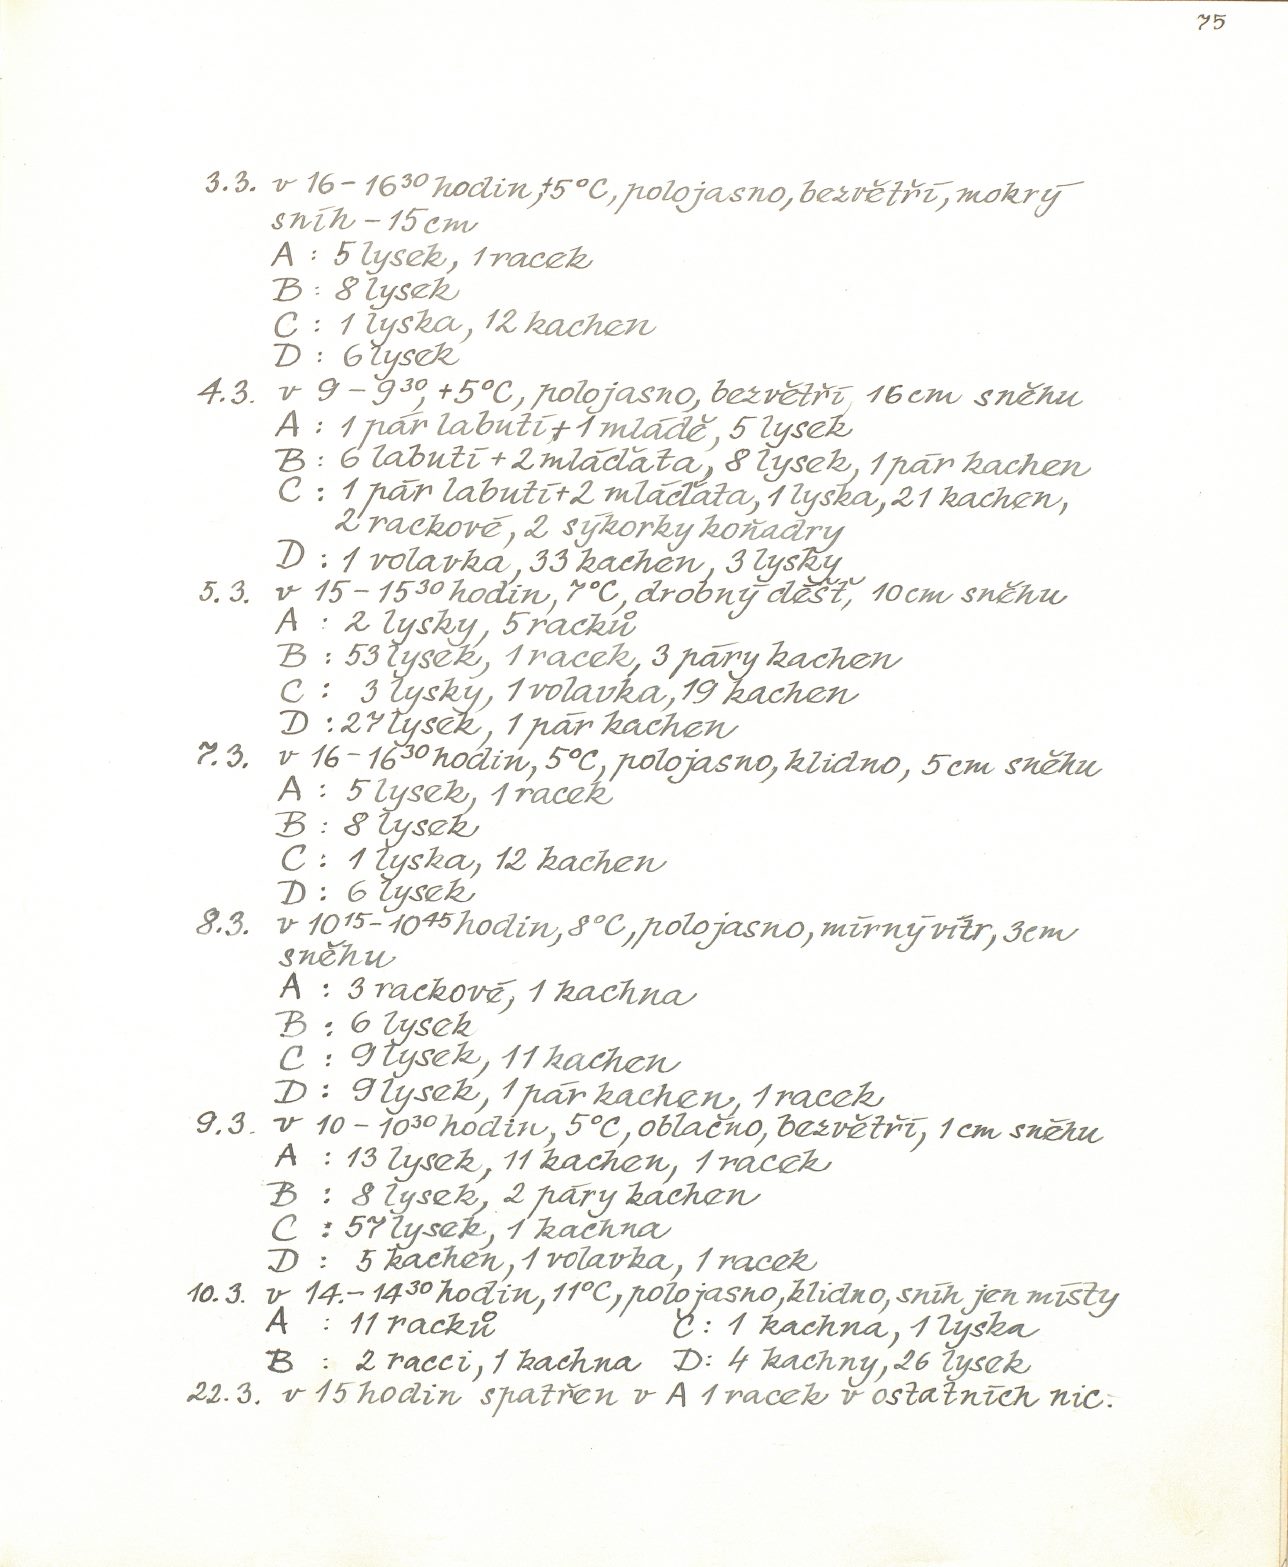 75
3.3. v 16 – 16³⁰ hodin, +5°C, polojasno, bezvětří, mokrý
sníh – 15 cm
A : 5 lysek, 1 racek
B : 8 lysek
C : 1 lyska, 12 kachen
D : 6 lysek
4.3. v 9 – 9³⁰, +5°C, polojasno, bezvětří, 16 cm sněhu
A : 1 pár labutí + 1 mládě, 5 lysek
B : 6 labutí + 2 mláďata, 8 lysek, 1 pár kachen
C : 1 pár labutí + 2 mláďata, 1 lyska, 21 kachen,
2 rackové, 2 sýkorky koňadry
D : 1 volavka, 33 kachen, 3 lysky
5.3. v 15 – 15³⁰ hodin, 7°C, drobný déšť, 10 cm sněhu
A : 2 lysky, 5 racků
B : 53 lysek, 1 racek, 3 páry kachen
C : 3 lysky, 1 volavka, 19 kachen
D : 27 lysek, 1 pár kachen
7.3. v 16 – 16³⁰ hodin, 5°C, polojasno, klidno, 5 cm sněhu
A : 5 lysek, 1 racek
B : 8 lysek
C : 1 lyska, 12 kachen
D : 6 lysek
8.3. v 10¹⁵ – 10⁴⁵ hodin, 8°C, polojasno, mírný vítr, 3 cm
sněhu
A : 3 rackové, 1 kachna
B : 6 lysek
C : 9 lysek, 11 kachen
D : 9 lysek, 1 pár kachen, 1 racek
9.3. v 10 – 10³⁰ hodin, 5°C, oblačno, bezvětří, 1 cm sněhu
A : 13 lysek, 11 kachen, 1 racek
B : 8 lysek, 2 páry kachen
C : 57 lysek, 1 kachna
D : 5 kachen, 1 volavka, 1 racek
10.3. v 14. – 14³⁰ hodin, 11°C, polojasno, klidno, sníh jen místy
A : 11 racků C : 1 kachna, 1 lyska
B : 2 racci, 1 kachna D : 4 kachny, 26 lysek
22.3. v 15 hodin spatřen v A 1 racek v ostatních nic.